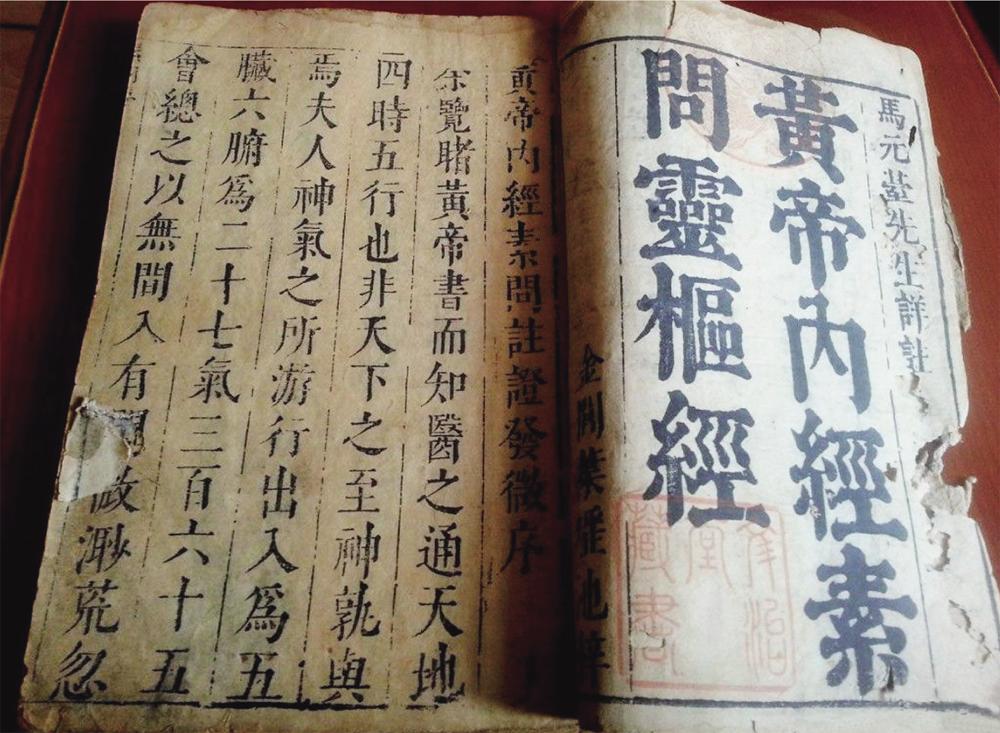 馬元臺先生詳註
黃帝內經素
問靈樞經
金閶葉
藏書
黃帝內經素問註證發微序
余覽睹黃帝書而知醫之通天地
四時五行也非天下之至神孰與
焉夫人神氣之所游行出入爲五
臟六腑爲二十七氣三百六十五
會總之以無間入有微渺荒忽